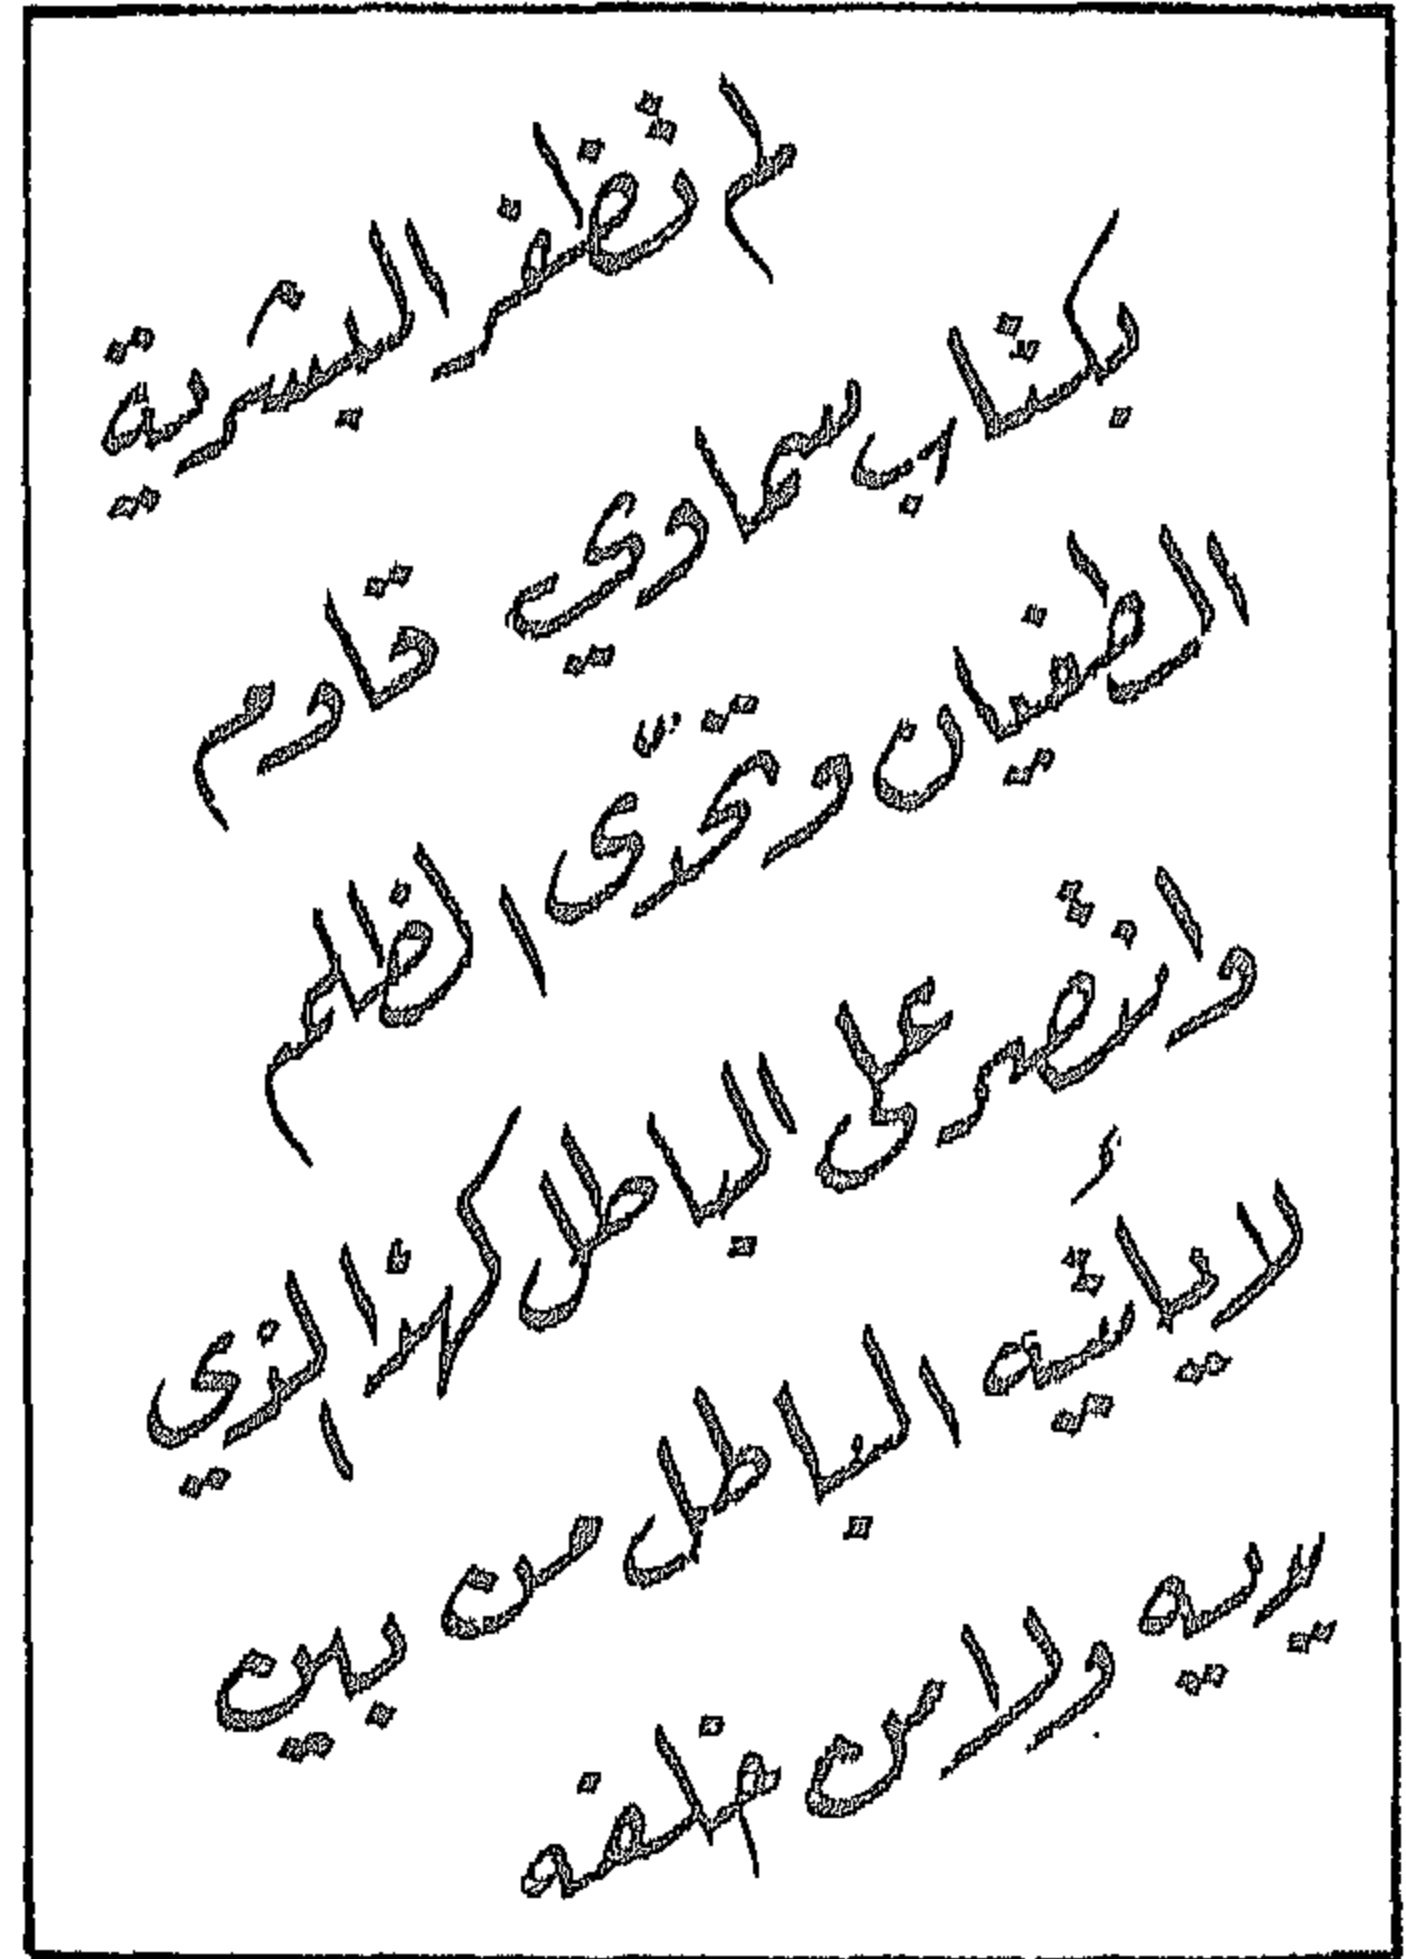 لم تظفر البشرية
بكتاب سماوي قاوم
الطغيان وتحدّى الظلم
وانتصر على الباطل كهذا الذي
لا يأتيه الباطل من بين
يديه ولا من خلفه